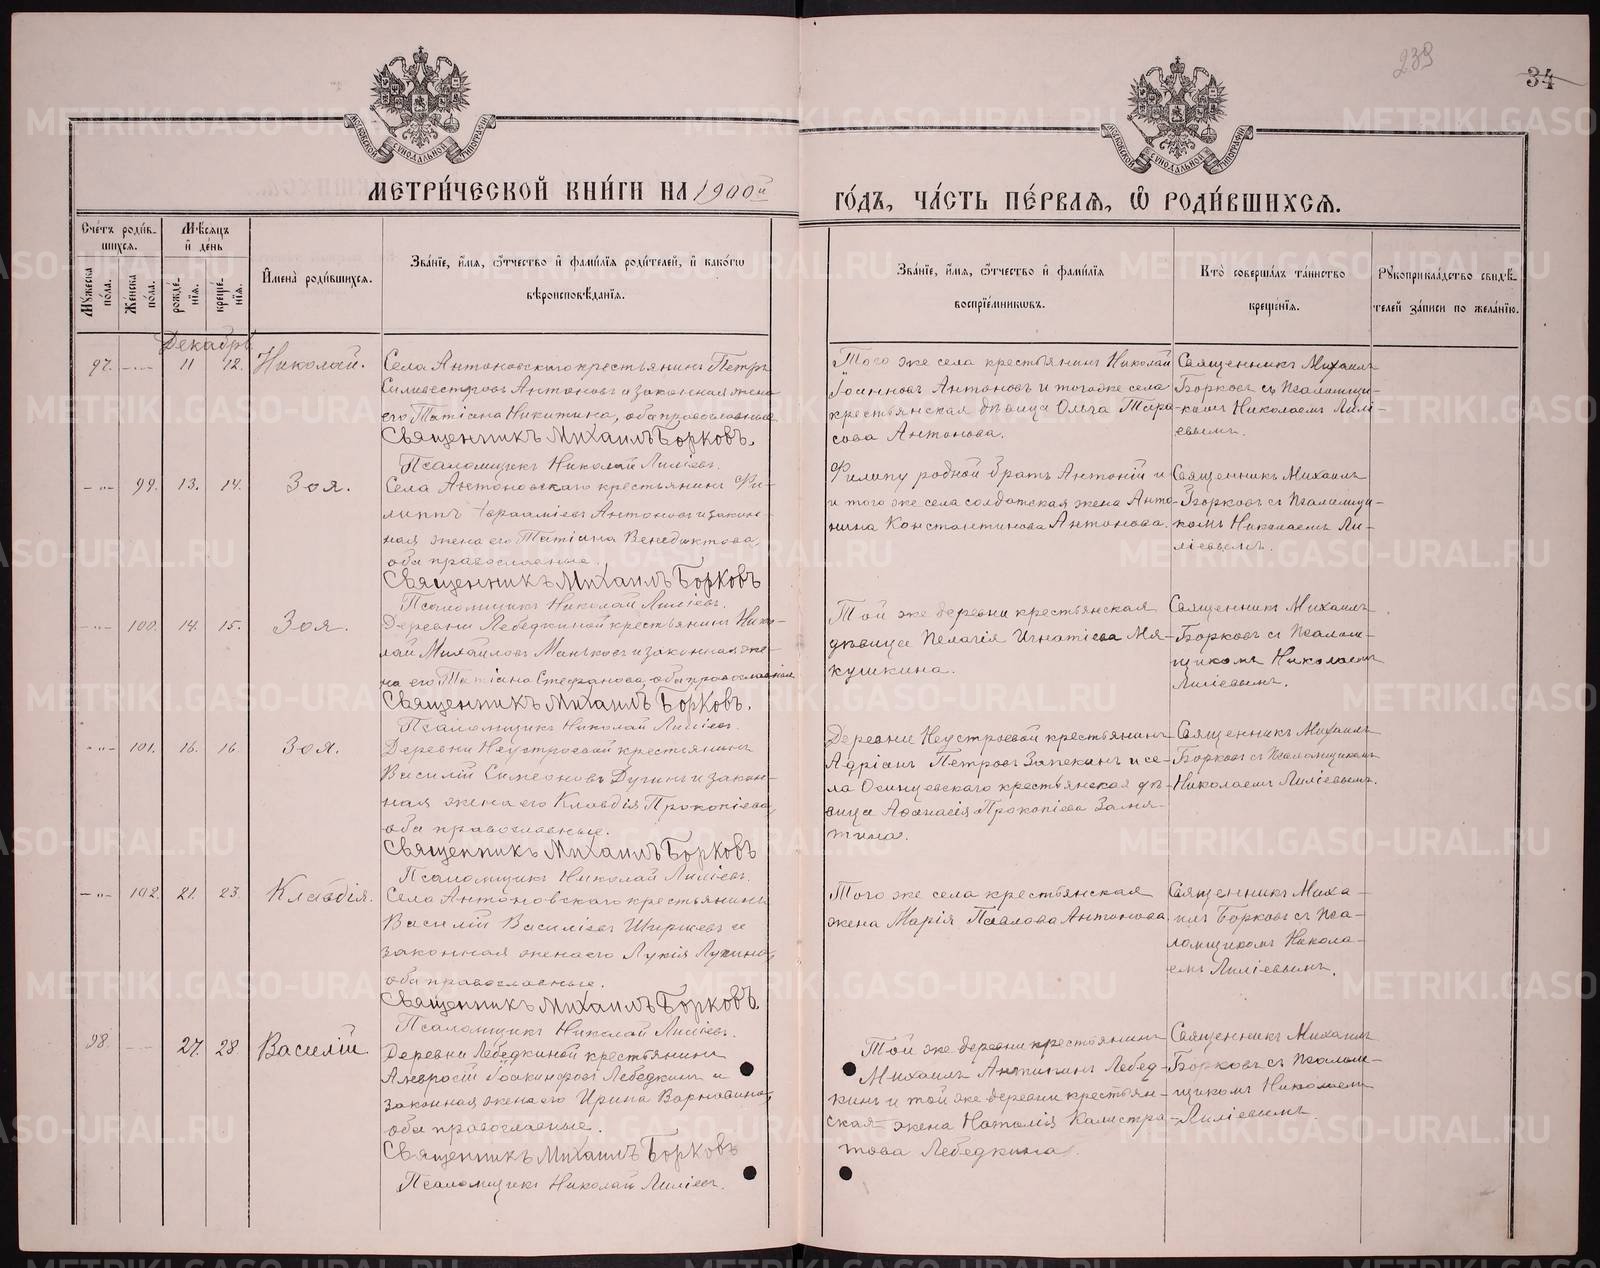 239
34
МОСКОВСКОЙ СѴНОДАЛЬНОЙ ТИПОГРАФІИ
МОСКОВСКОЙ СѴНОДАЛЬНОЙ ТИПОГРАФІИ
МЕТРИ́ЧЕСКОЙ КНИ́ГИ НА 1900й
ГО́ДЪ, ЧА́СТЬ ПЕ́РВАѦ, Ѡ҆ РОДИ́ВШИХСѦ.
Сче́тъ роди́в-
шихсѧ.
Мꙋжеска по́ла.
Же́нска по́ла.
Мѣ́сѧцъ
и҆ де́нь
рожде́-
нїѧ.
креще́-
нїѧ.
И҆мена̀ роди́вшихсѧ.
Зва́нїе, и҆́мѧ, ѻ҆́тчество и҆ фами́лїѧ роди́телей, и҆ како́гѡ
вѣроисповѣ́данїѧ.
Зва́нїе, и҆́мѧ, ѻ҆́тчество и҆ фами́лїѧ
воспрїе́мникѡвъ.
Кто̀ соверша́лъ та́инство
креще́нїѧ.
Рꙋкоприкла́дство свидѣ́-
телей за́писи по жела́нїю.
Декабрь
97. -"- 11 12. Николай.
Села Антоновскаго крестьянинъ Петръ
Силивестровъ Антоновъ и законная жена
его Татіана Никитина, оба православные
Священникъ Михаилъ Борковъ.
Псаломщикъ Николай Лиліевъ.
Того же села крестьянинъ Николай
Іоанновъ Антоновъ и того же села
крестьянская дѣвица Ольга Тара-
сова Антонова.
Священникъ Михаилъ
Борковъ съ Псаломщи-
комъ Николаемъ Лилі-
евымъ.
-"- 99. 13. 14. Зоя.
Села Антоновскаго крестьянинъ Фи-
липпъ Авраамиевъ Антоновъ и закон-
ная жена его Татіана Венедиктова,
оба православные.
Священникъ Михаилъ Борковъ
Псаломщикъ Николай Лиліевъ.
Филипу родной братъ Антоній и
и того же села солдатская жена Анто-
нина Константинова Антонова.
Священникъ Михаилъ
Борковъ съ Псаломщи-
комъ Николаемъ Ли-
ліевымъ.
-"- 100. 14. 15. Зоя.
Деревни Лебедкиной крестьянинъ Нико-
лай Михайловъ Маньковъ и законная же-
на его Татіана Стефанова, оба православные
Священникъ Михаилъ Борковъ.
Псаломщикъ Николай Лиліевъ.
Той же деревни крестьянская
дѣвица Пелагія Игнатіева Мя-
кушкина.
Священникъ Михаилъ
Борковъ съ Псалом-
щикомъ Николаемъ
Лиліевымъ.
-"- 101. 16. 16. Зоя.
Деревни Неустроевой крестьянинъ
Василій Симеоновъ Дугинъ и закон-
ная жена его Клавдія Прокопіева,
оба православные.
Священникъ Михаилъ Борковъ
Псаломщикъ Николай Лиліевъ.
Деревни Неустроевой крестьянинъ
Адріанъ Петровъ Запеканъ и се-
ла Осинцевскаго крестьянская дѣ-
вица Афанасія Прокопіева Замя-
тина.
Священникъ Михаилъ
Борковъ съ Псаломщикомъ
Николаемъ Лиліевымъ.
-"- 102. 21. 23. Клавдія.
Села Антоновскаго крестьянинъ
Василій Василіевъ Ширшевъ и
законная жена его Лукія Лукина,
оба православные.
Священникъ Михаилъ Борковъ.
Псаломщикъ Николай Лиліевъ.
Того же села крестьянская
жена Марія Павлова Антонова
Священникъ Миха-
илъ Борковъ съ Пса-
ломщикомъ Никола-
емъ Лиліевымъ.
98. -"- 27. 28. Василій
Деревни Лебедкиной крестьянинъ
Амвросій Іоакинфовъ Лебедкинъ и
законная жена его Ирина Варнавина,
оба православные.
Священникъ Михаилъ Борковъ
Псаломщикъ Николай Лиліевъ.
Той же деревни крестьянинъ
Михаилъ Антипинъ Лебед-
кинъ и той же деревни крестьян-
ская жена Наталія Калистра-
това Лебедкина.
Священникъ Михаилъ
Борковъ съ Псалом-
щикомъ Николаемъ
Лиліевымъ.
METRIKI.GASO-URAL.RU